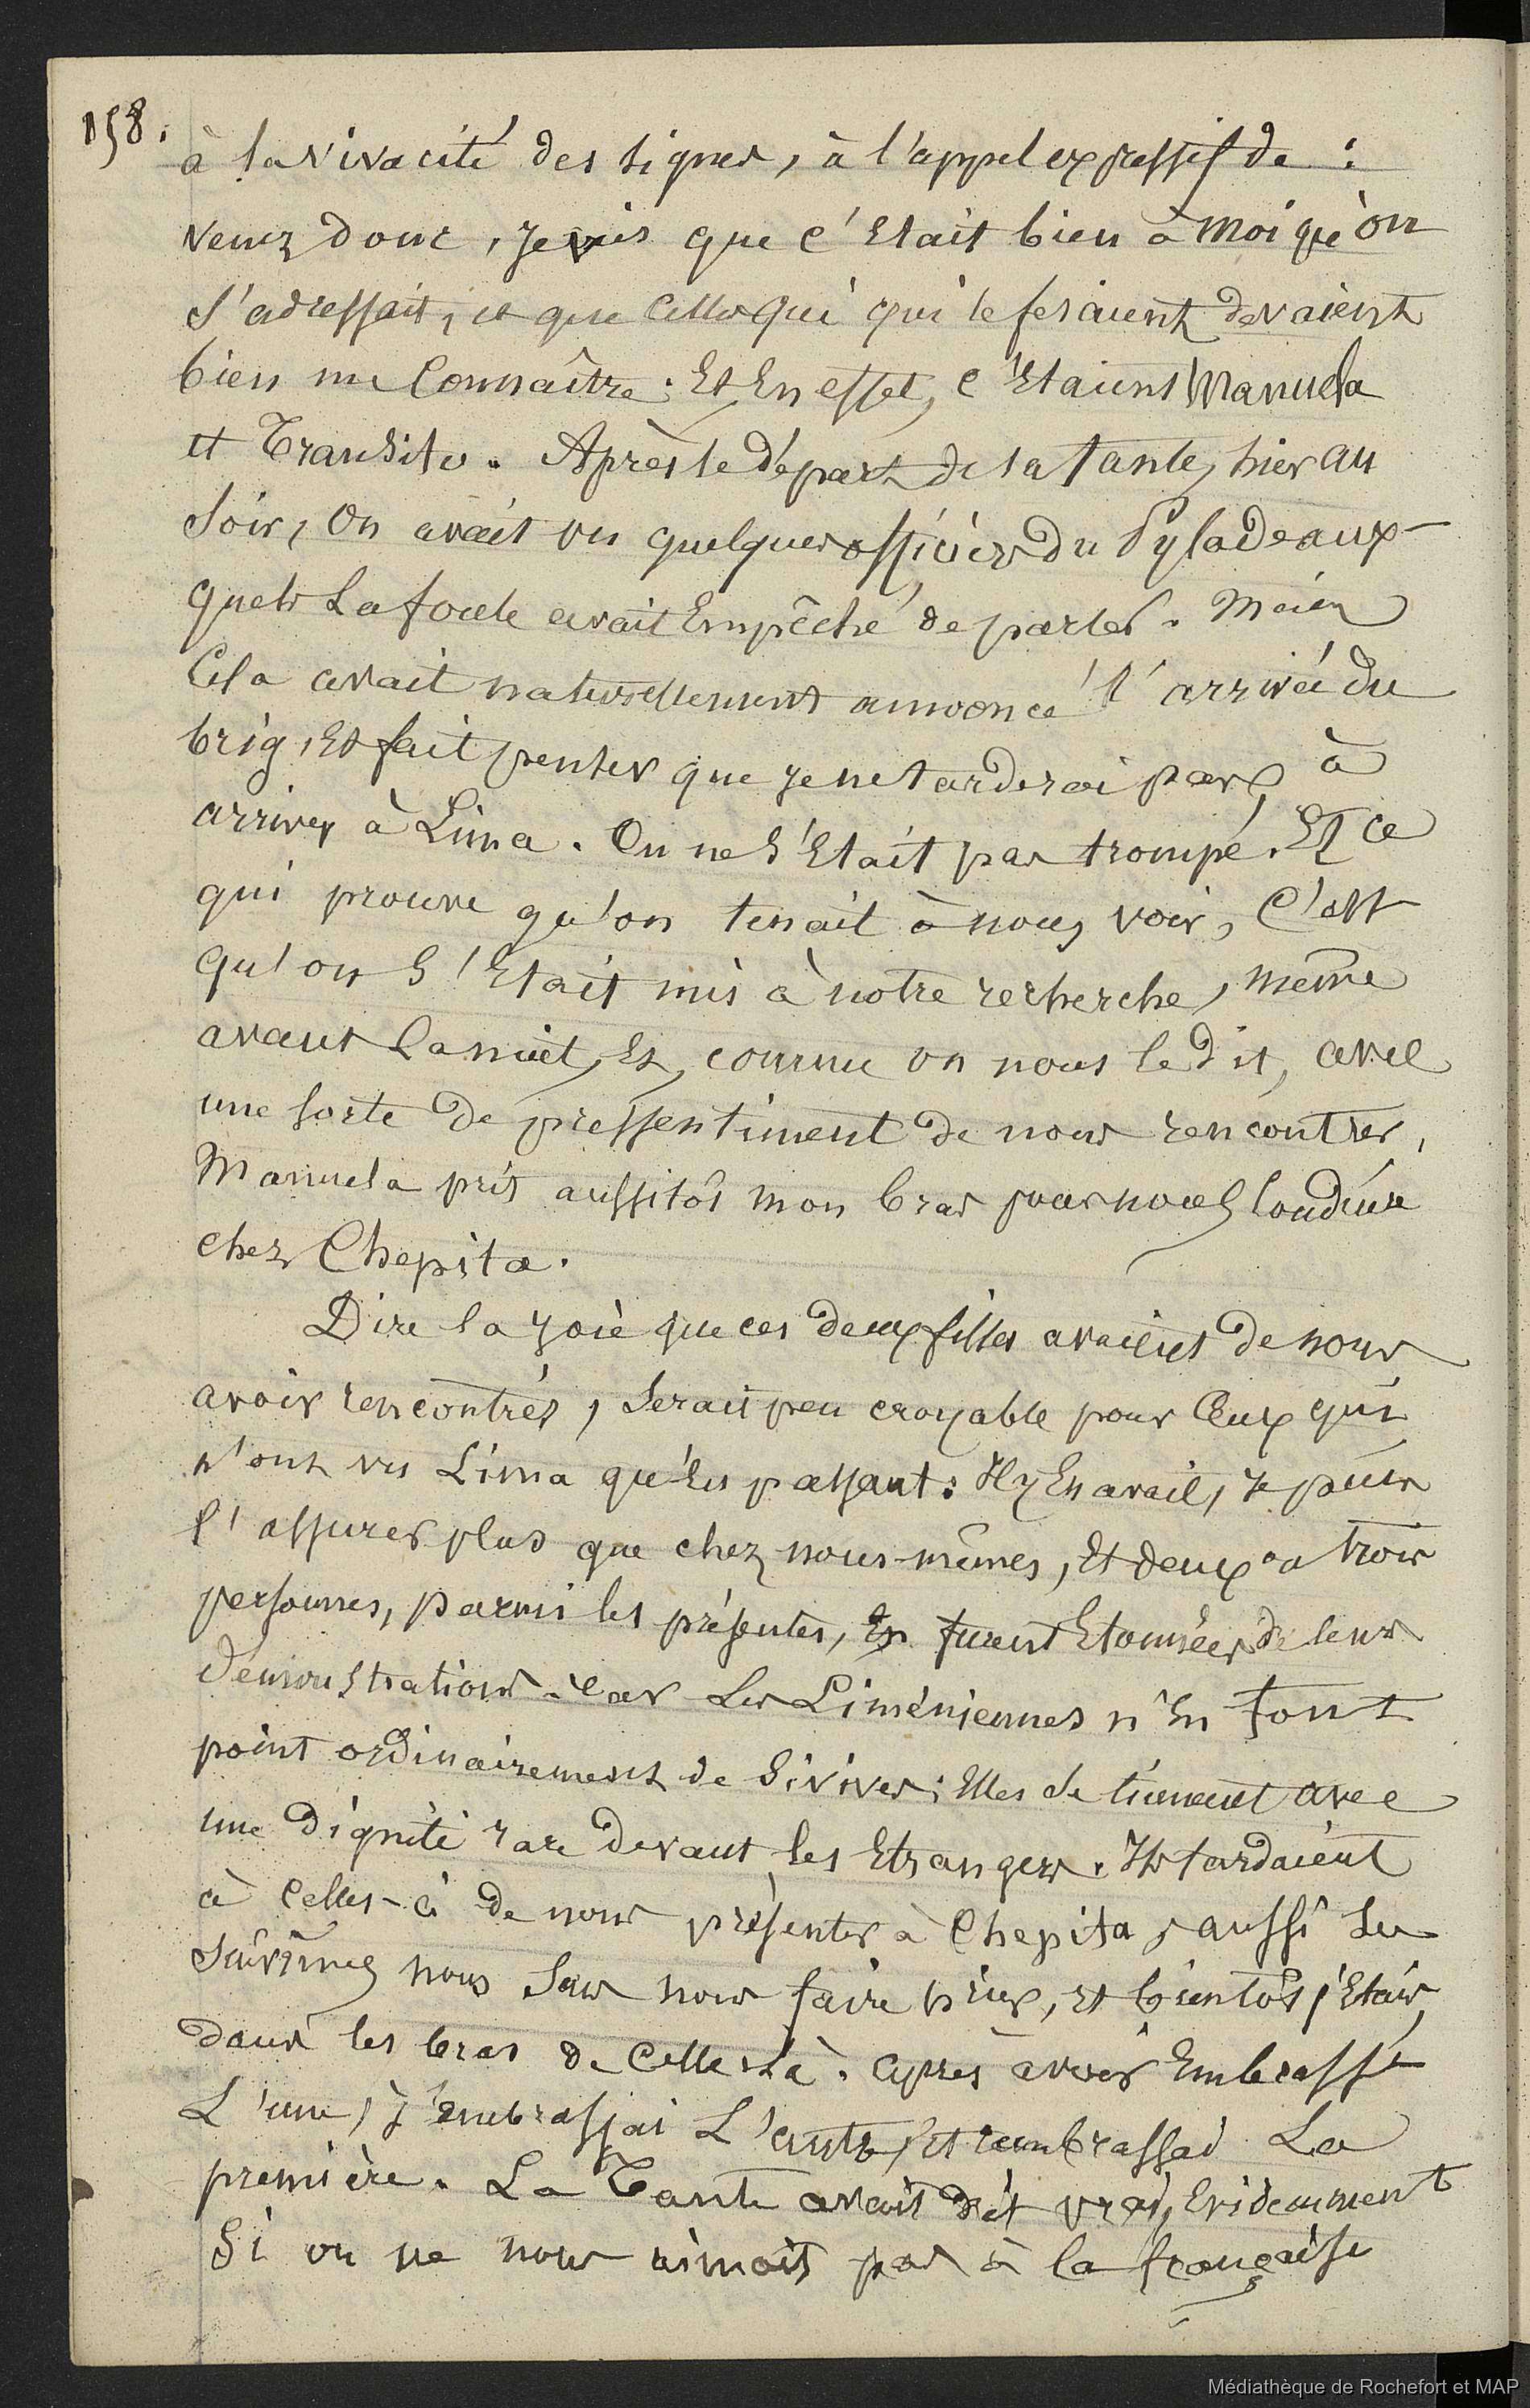 158.
à la vivacité des signes, à l'appel expressif de :
venez donc, je vis que c'était bien à moi qu'on
s'adressait, et que celles qui qui le fesaient devaient
bien me connaître. Et en effet, c'étaient Manuela
et Transito. Après le départ de la tante, hier au
soir, on avait vu quelques officiers du Pylade aux-
quels la foule avait empêché de parler. Mais
cela avait naturellement annoncé l'arrivée du
brig, et fait penser que je ne tarderai pas à
arriver à Lima. On ne s'était pas trompé. Et ce
qui prouve qu'on tenait à nous voir, c'est
qu'on s'était mis à notre recherche, même
avant la nuit, et, comme on nous le dit, avec
une sorte de pressentiment de nous rencontrer.
Manuela prit aussitôt mon bras pour nous conduire
chez Chepita.
Dire la joie que ces deux filles avaient de nous
avoir rencontrés, serait peu croyable pour ceux qui
n'ont vu Lima qu'en passant: Il y en avait, je puis
l'assurer plus que chez nous-mêmes, et deux ou trois
personnes, parmi les présentes, en furent étonnées de leurs
démonstrations. car les Liméniennes n'en font
point ordinairement de si vives; elles se tiennent avec
une dignité rare devant les étrangers. Il tardait
à celles-ci de nous présenter à Chepita, aussi les
suivîmes nous sans nous faire prier, et bientôt j'étais
dans les bras de celle-là. après avoir embrassé
l'une, j'embrassai l'autre, et rembrassai la
première. La Tante avait dit vrai, évidemment
si on ne nous aimait pas à la française
Médiathèque de Rochefort et MAP